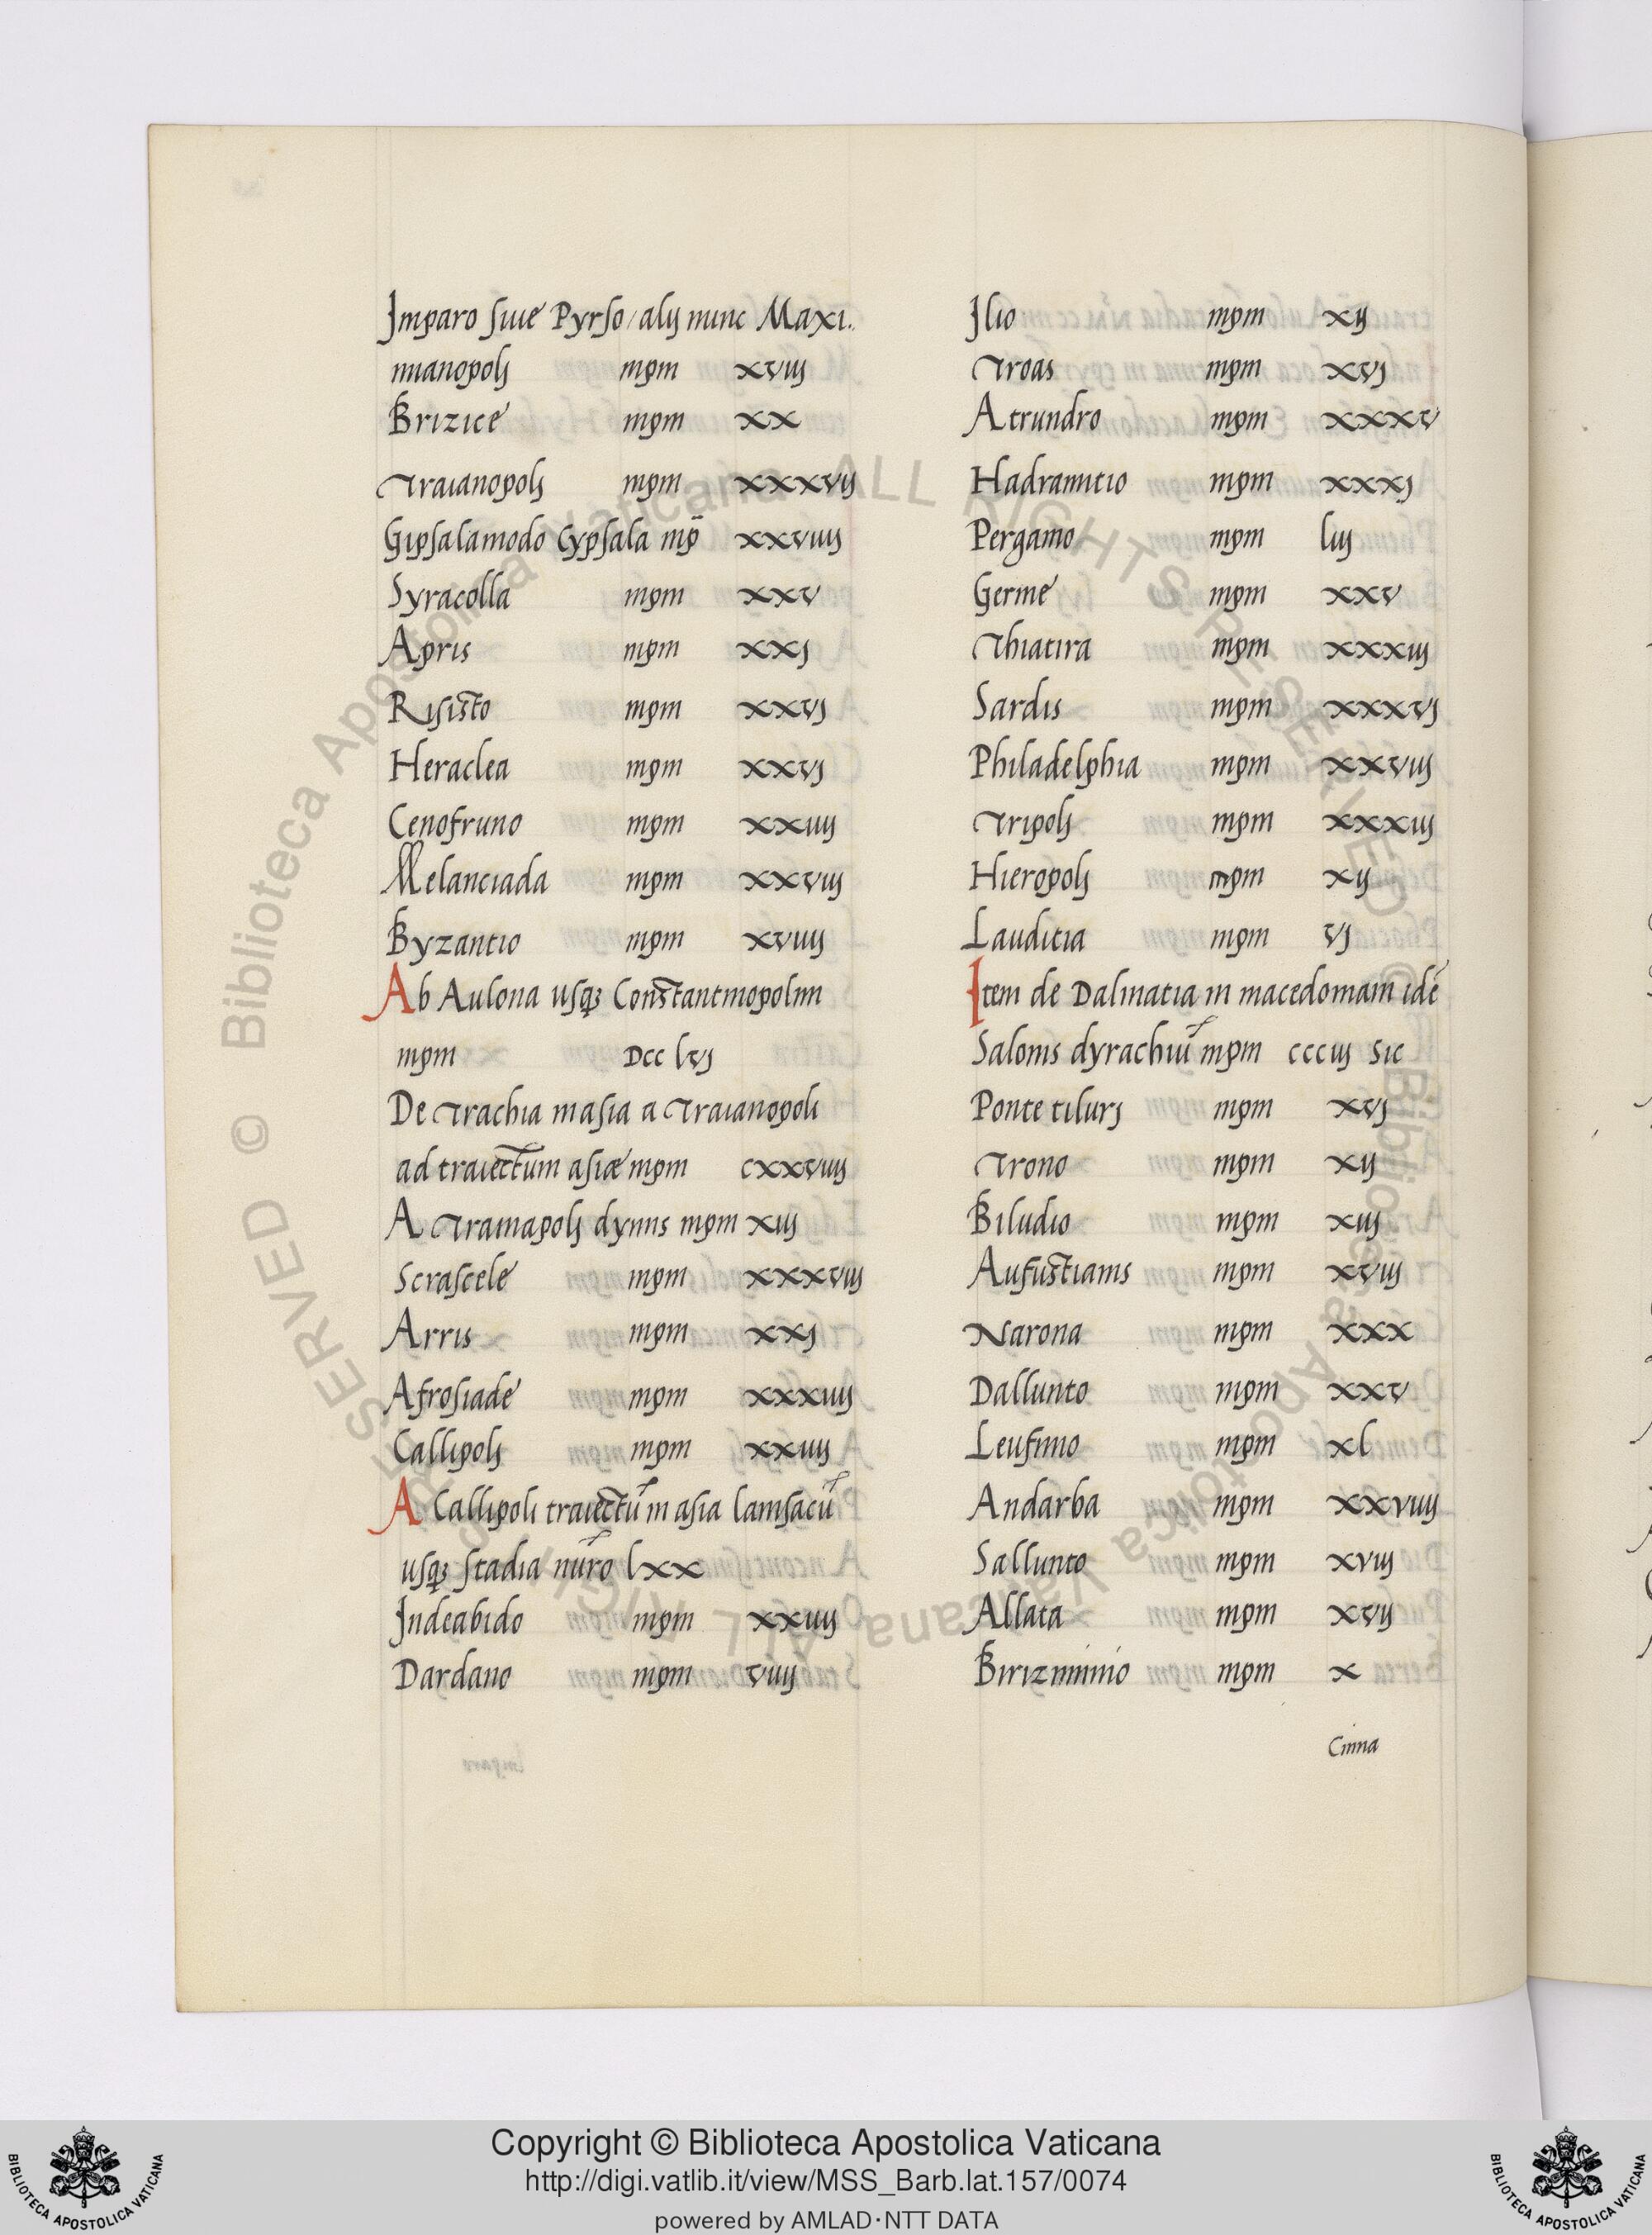 Imparo siue Pyrso / alij nunc Maxi.
mianopolis mpm xviij
Brizice mpm xx
Traianopolis mpm xxxvij
Gipsala modo Cypsala mp̄ xxviiij
Syracolla mpm xxv
Apris mpm xxj
Risisto mpm xxvj
Heraclea mpm xxvj
Cenofruno mpm xxiiij
Melanciada mpm xxviij
Byzantio mpm xviiij
Ab Aulona usqꝫ Constantinopolim
mpm Dcc lvj
De Trachia in asia a Traianopoli
ad traiectum asiæ mpm cxxviiij
A Trainapolis dymis mpm xiij
Scrascele mpm xxxviij
Arris mpm xxj
Afrosiade mpm xxxiiij
Callipolis mpm xxiiij
A Callipoli traiectū in asia lamsacū
usqꝫ stadia nūro lxx
Indeabido mpm xxiiij
Dardano mpm viiij
Ilio mpm xij
Troas mpm xvj
Atrundro mpm xxxv
Hadramitio mpm xxxj
Pergamo mpm liij
Germe mpm xxv
Thiatira mpm xxxiij
Sardis mpm xxxvj
Philadelphia mpm xxviij
Tripolis mpm xxxiij
Hieropolis mpm xij
Lauditia mpm vj
Item de Dalmatia in macedoniam idē
Salonis dyrachiū mpm ccciij sic
Ponte tilurj mpm xvj
Trono mpm xij
Biludio mpm xiij
Aufustianis mpm xviij
Narona mpm xxx
Dallunto mpm xxv
Leufinio mpm xl
Andarba mpm xxviiij
Sallunto mpm xviij
Allata mpm xvij
Birizminio mpm x
Cinna
Copyright © Biblioteca Apostolica Vaticana
http://digi.vatlib.it/view/MSS_Barb.lat.157/0074
powered by AMLAD·NTT DATA